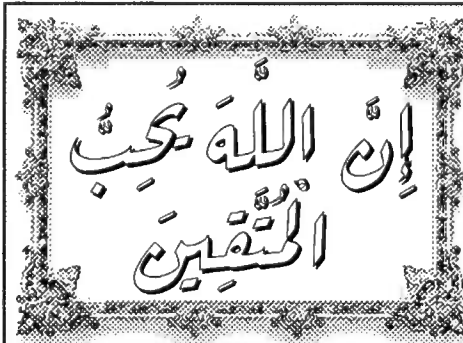 إِنَّ اللَّهَ يُحِبُّ
الْمُتَّقِينَ